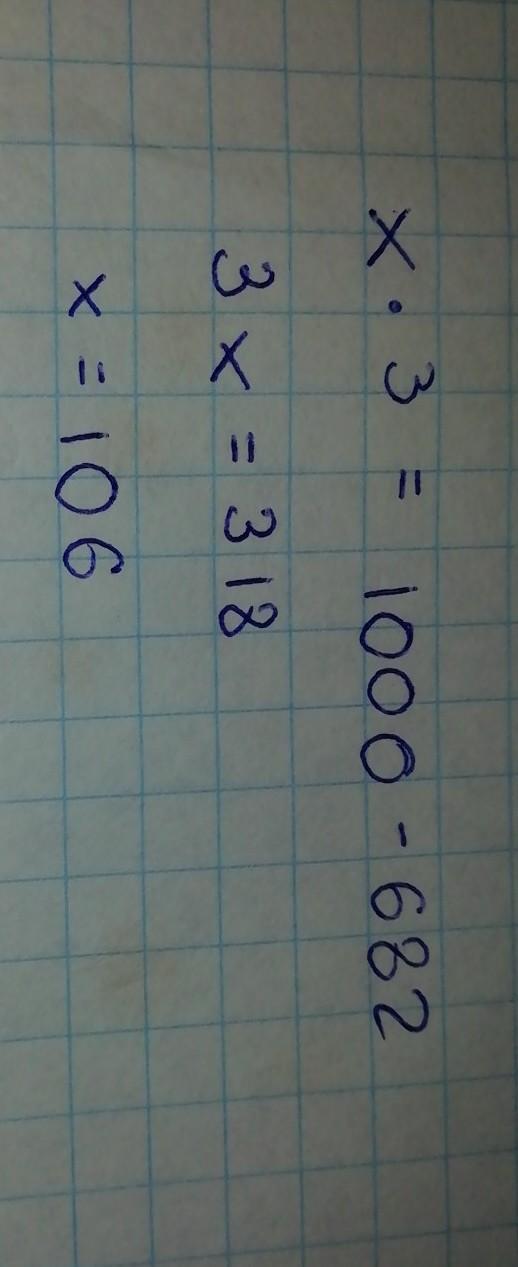 x · 3 = 1000 - 682
3x = 318
x = 106